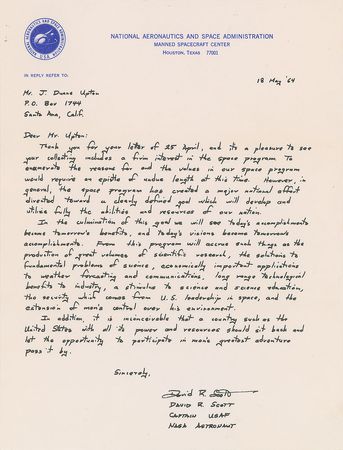 NATIONAL AERONAUTICS AND SPACE ADMINISTRATION
MANNED SPACECRAFT CENTER
HOUSTON, TEXAS 77001
IN REPLY REFER TO:
18 May '64
Mr. J. Duane Upton
P.O. Box 1744
Santa Ana, Calif.
Dear Mr. Upton:
Thank you for your letter of 25 April, and its a pleasure to see
your collecting includes a firm interest in the space program. To
enumerate the reasons for and the values in our space program
would require an epistle of undue length at this time. However, in
general, the space program has created a major national effort
directed toward a clearly defined goal which will develop and
utilize fully the abilities and resources of our nation.
In the culmination of this goal we will see today's accomplishments
become tomorrow's benefits, and today's visions become tomorrow's
accomplishments. From this program will accrue such things as the
production of great volumes of scientific research, the solutions to
fundamental problems of science, economically important applications
to weather forecasting and communications, long range technological
benefits to industry, a stimulus to science and science education,
the security which comes from U.S. leadership in space, and the
extension of man's control over his environment.
In addition, it is inconceivable that a country such as the
United States with all its power and resources should sit back and
let the opportunity to participate in man's greatest adventure
pass it by.
Sincerely,
David R. Scott
DAVID R. SCOTT
CAPTAIN USAF
NASA ASTRONAUT